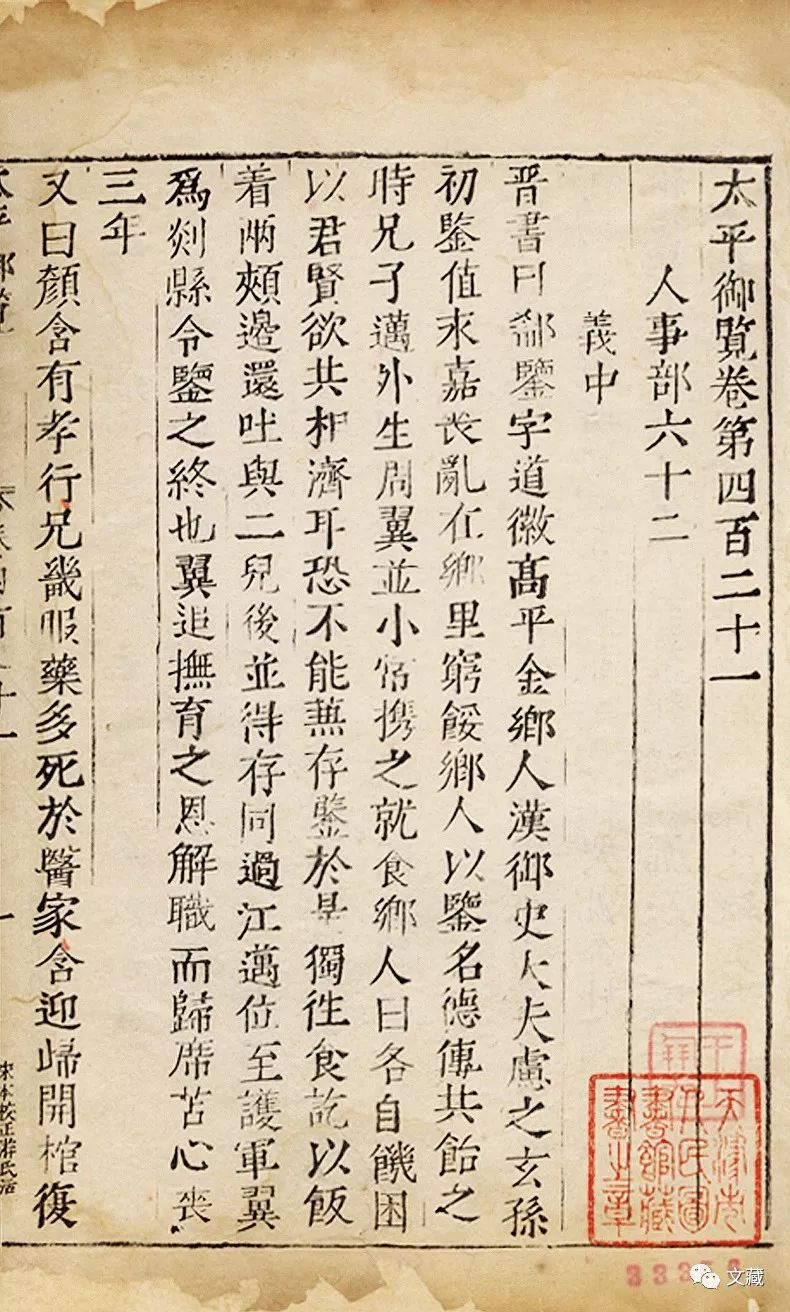 太平御覽卷第四百二十一
人事部六十二
義中
晉書曰郗鑒字道徽高平金鄉人漢御史大夫慮之玄孫
初鑒值永嘉喪亂在鄉里窮餒鄉人以鑒名德傳共飴之
時兄子邁外生周翼並小常携之就食鄉人曰各自饑困
以君賢欲共相濟耳恐不能兼存鑒於是獨往食訖以飯
着兩頰邊還吐與二兒後並得存同過江邁位至護軍翼
爲剡縣令鑒之終也翼追撫育之恩解職而歸席苫心喪
三年
又曰顏含有孝行兄畿服藥多死於醫家含迎歸開棺復
宋本校正游氏活
天津市人民圖書館藏書之章
文藏